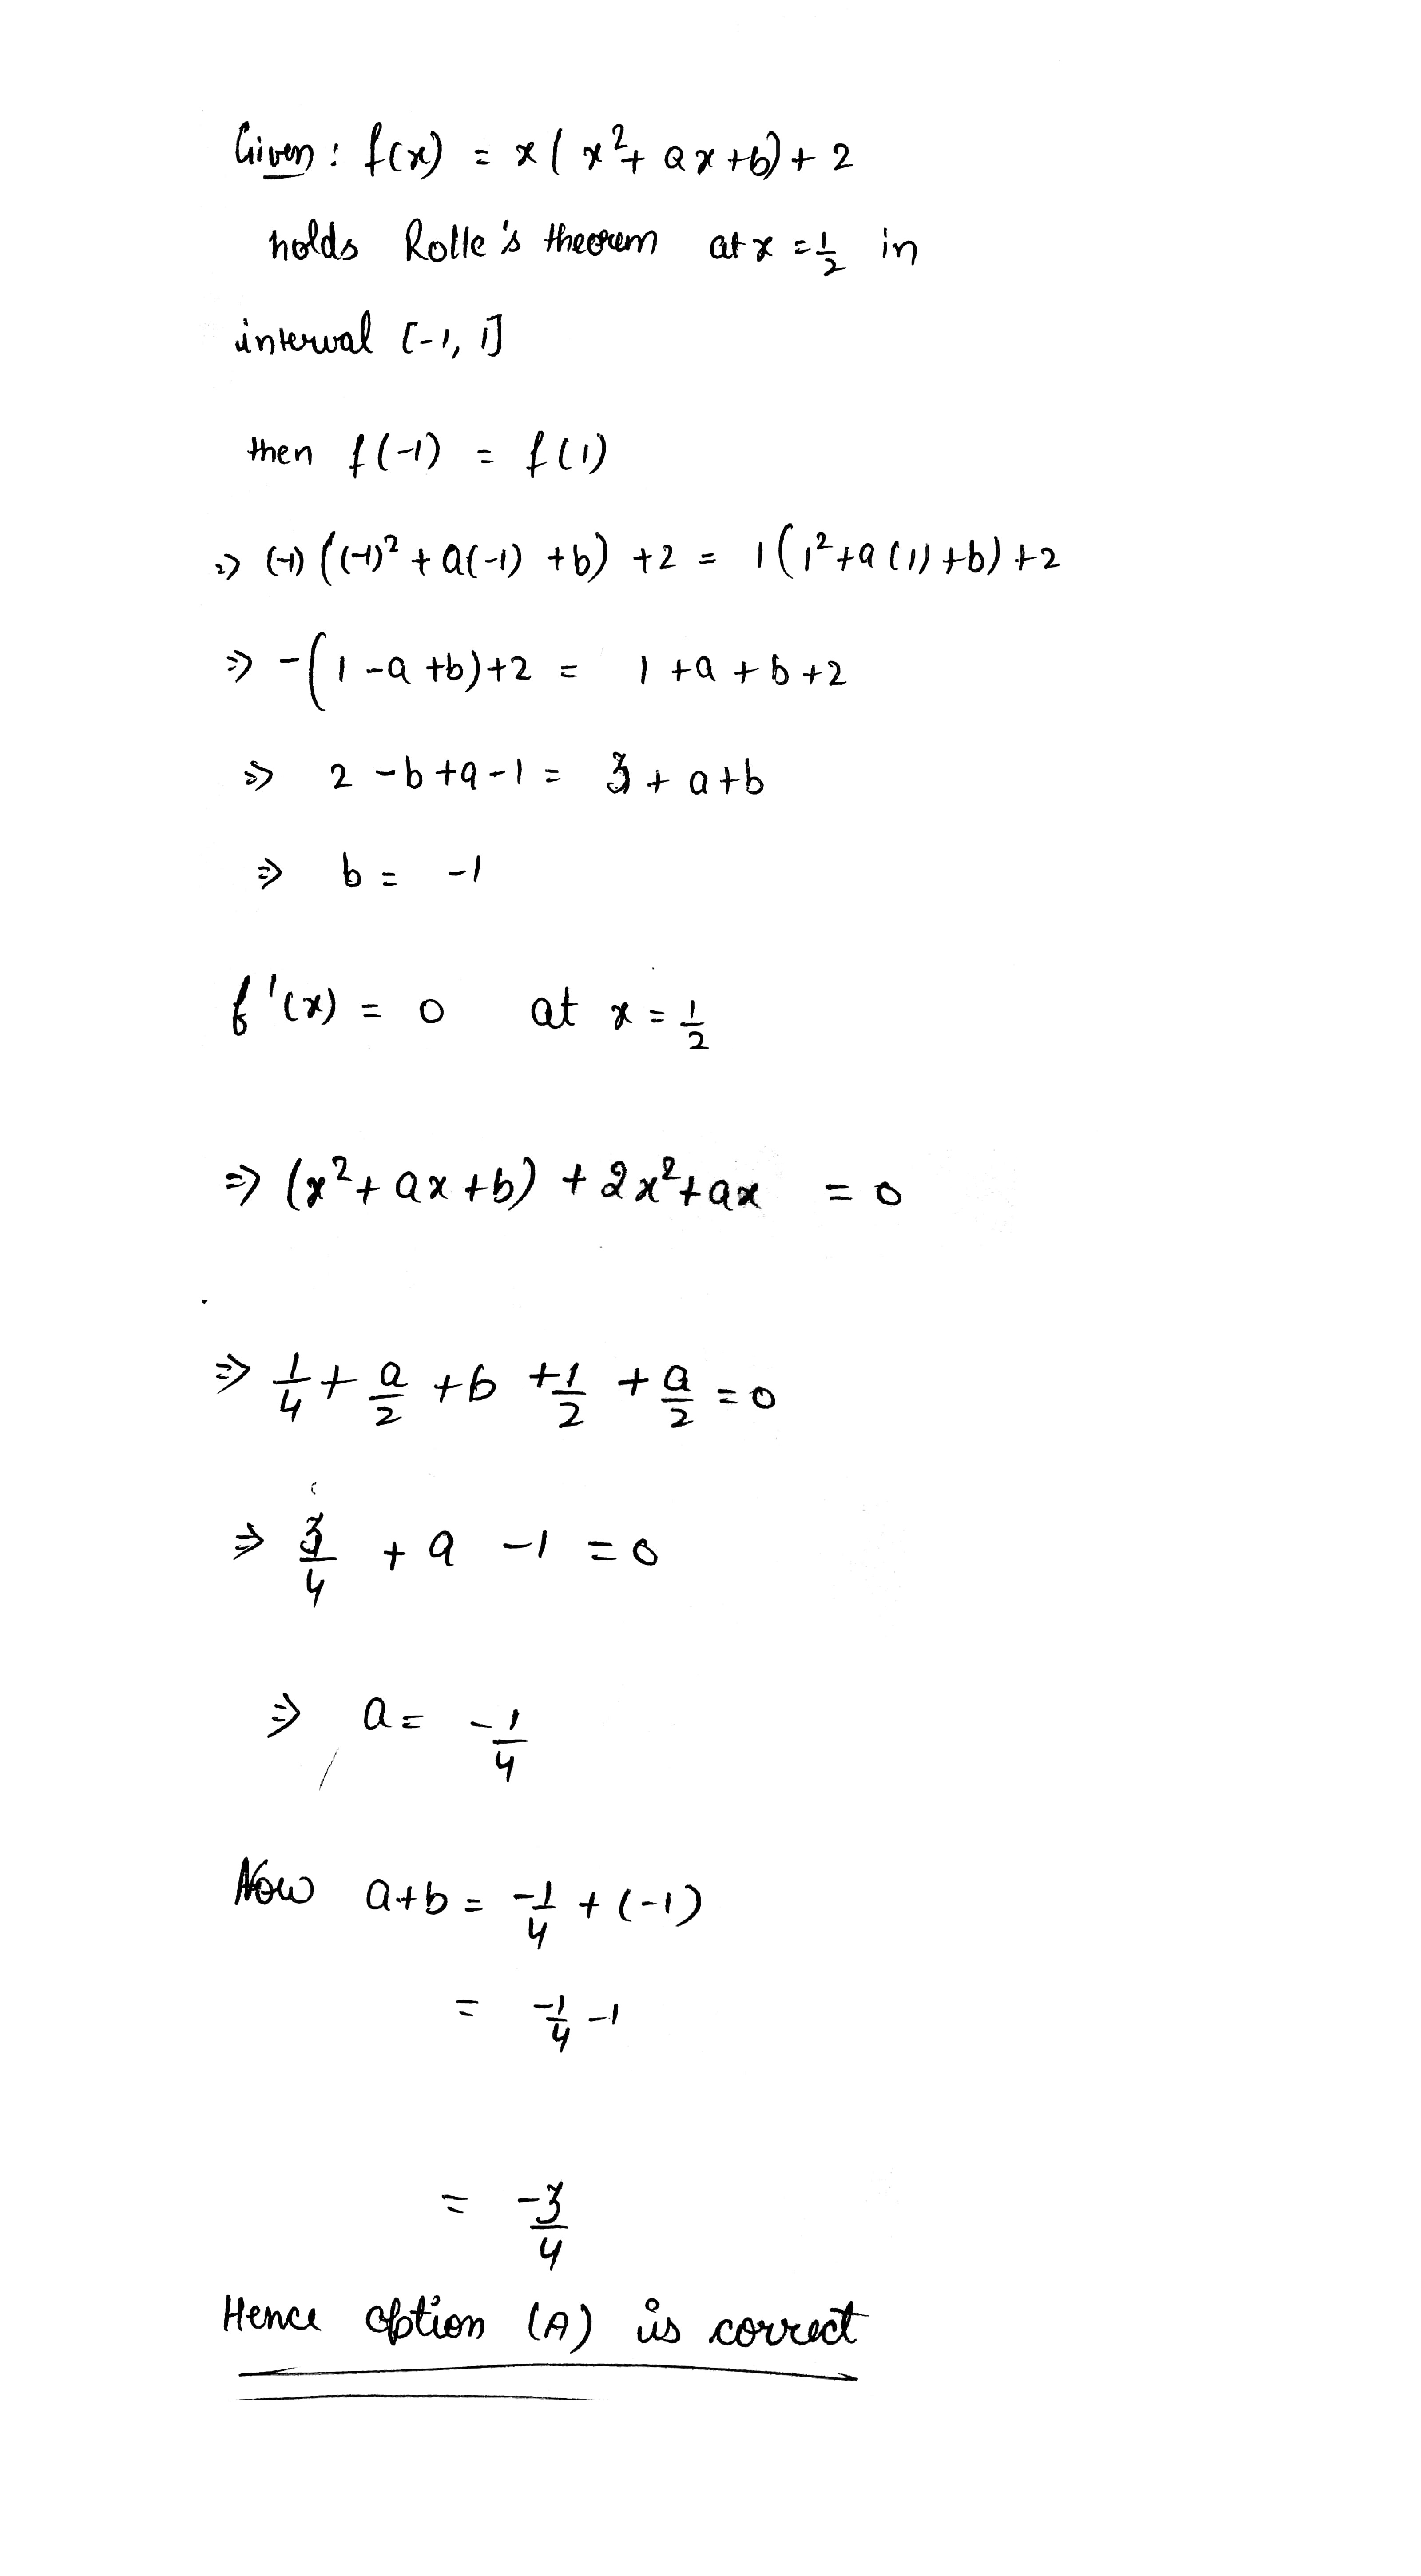 Given : f(x) = x(x²+ax+b)+2
holds Rolle's theorem at x = 1/2 in
interval [-1, 1]
then f(-1) = f(1)
⇒ (-1)((-1)²+a(-1)+b)+2 = 1(1²+a(1)+b)+2
⇒ -(1-a+b)+2 = 1+a+b+2
⇒ 2-b+a-1 = 3+a+b
⇒ b = -1
f'(x) = 0 at x = 1/2
⇒ (x²+ax+b)+2x²+ax = 0
⇒ 1/4 + a/2 + b + 1/2 + a/2 = 0
⇒ 3/4 + a - 1 = 0
⇒ a = -1/4
Now a+b = -1/4 + (-1)
= -1/4 - 1
= -3/4
Hence option (A) is correct